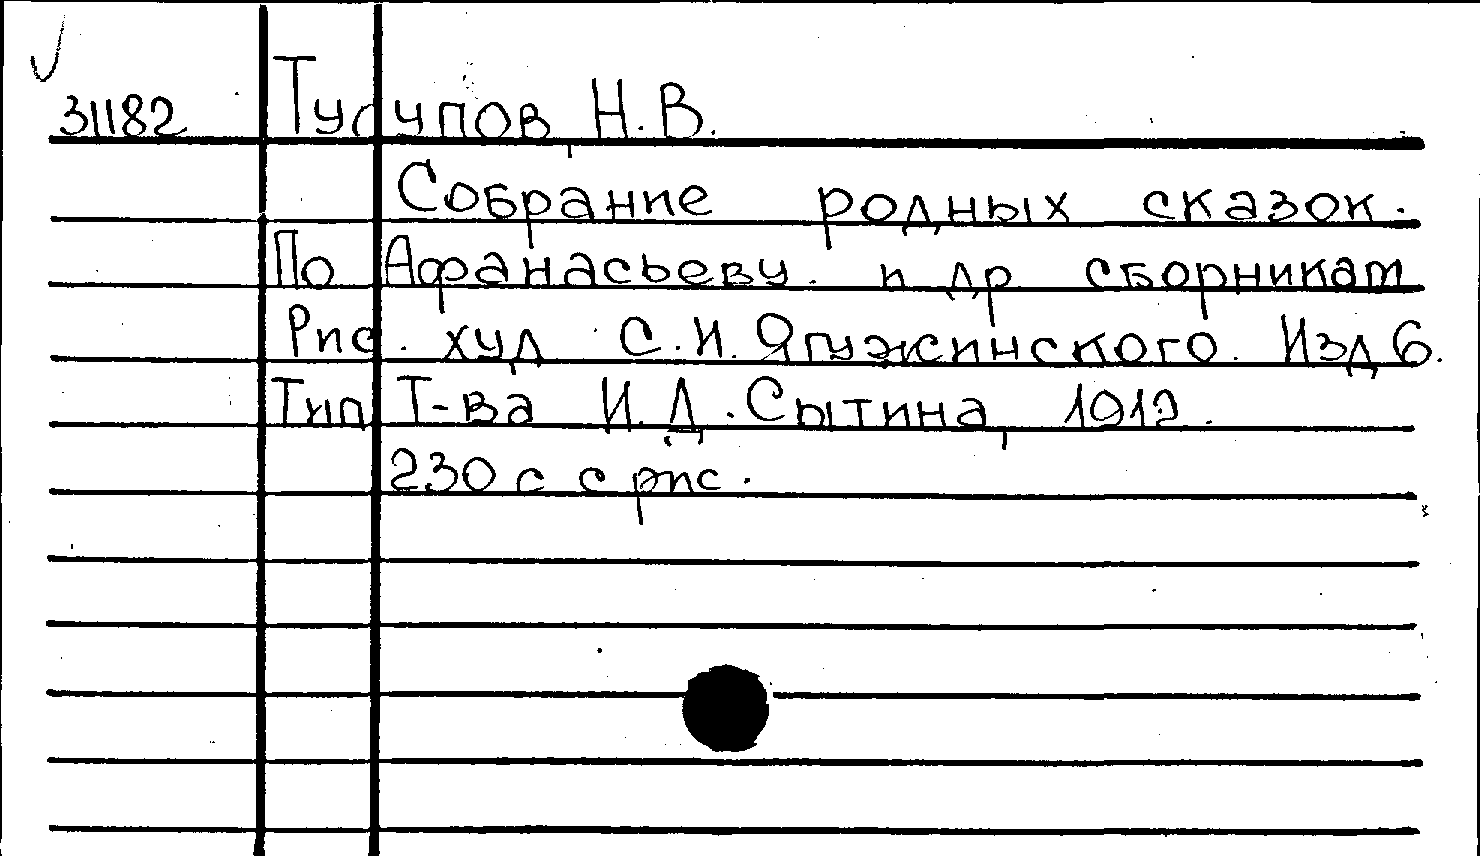 31182 Тусупов, Н. В.
Собрание родных сказок.
По Афанасьеву и др сборникам
Рис. худ С. И. Ягужинского. Изд 6.
Тип Т-ва И. Д. Сытина, 1912.
230 с с рис.